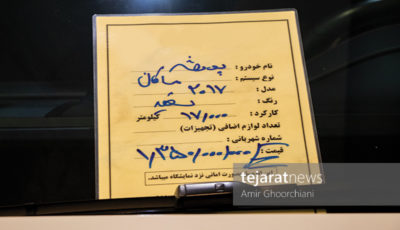 نام خودرو : پورشه
نوع سیستم : ماکان
مدل : ۲۰۱۷
رنگ : سفید
کارکرد : ۱۷/۰۰۰ کیلومتر
تعداد لوازم اضافی (تجهیزات)
شماره شهربانی :
قیمت : ۱/۳۵۰/۰۰۰/۰۰۰
صورت امانی نزد نمایشگاه میباشد.
tejaratnews
Amir Ghoorchiani